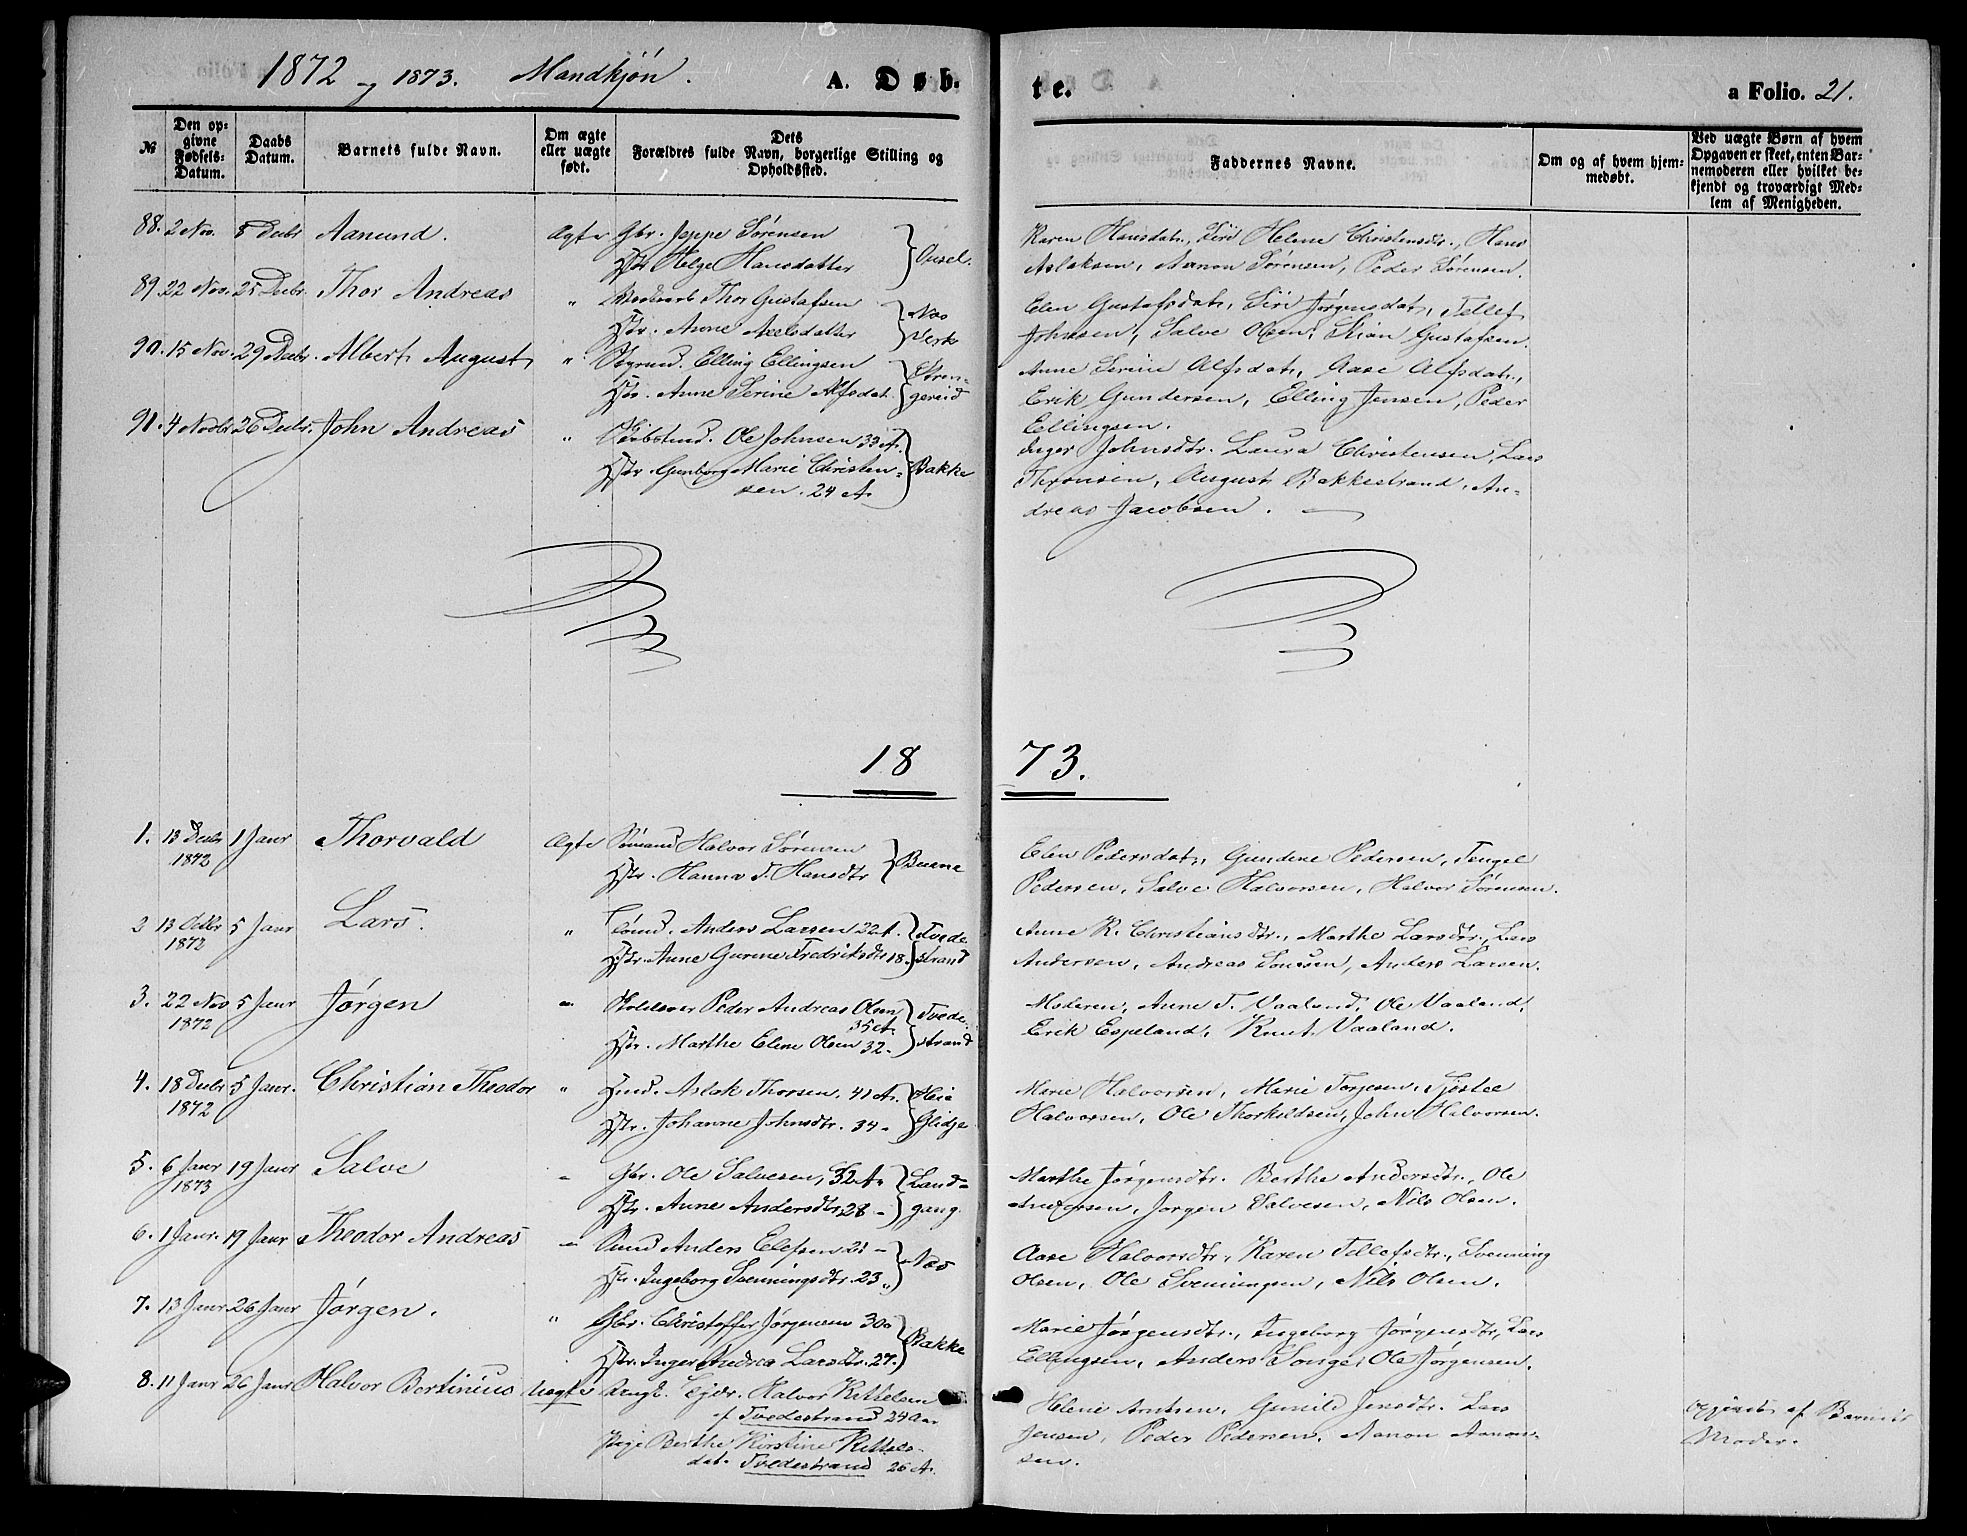 1872 og 1873. Mandkjøn. A. Døb-
te. a Folio. 21.
№ Den opgivne Fødsels-Datum. Daabs Datum. Barnets fulde Navn. Om ægte eller uægte født. Dets Forældres fulde Navn, borgerlige Stilling og Opholdssted.
Faddernes Navne. Om og af hvem hjemmedøbt. Ved uægte Børn af hvem Opgaven er skeet, enten Barnemoderen eller hvilket bekjendt og troværdigt Medlem af Menigheden.
88. 2 Nov. 8 Decbr Aanund. Ægte Gbr. Jeppe Sørensen
Hstr Helge Hansdatter
Karen Hansdatr, Siri Helene Christensdtr., Hans
Aslaksen, Aanon Sørensen, Peder Sørensen.
89. 22 Nov. 25 Decbr. Thor Andreas " Thor Gustafsen
Hstr. Anne Axelsdatter } Næs Verk
Elen Gustafsdatr, Siri Jørgensdatr, Tellef
Johnsen, Salve Olsen, Gustafsen.
90. 15 Nov. 29 Decbr. Albert August " Elling Ellingsen
Hstr. Anne Serine Alfsdat. } Strengereid
Anne Serine Alfsdatr., Aase Alfsdatr.,
Erik Gundersen, Elling Jensen, Peder
Ellingsen.
91. 4 Novbr 26 Decbr. John Andreas " Ole Johnsen 33 A.
Hstr Gunborg Marie Christen-
sen. 24 A. } Bakke
Inger Johnsdtr. Laura Christensen, Lars
August Bakkestrand, An-
dreas Jacobsen.
18 73.
1. 13 Decbr 1872 1 Janr Thorvald Ægte Sømand Halvor Sørensen
Hstr. Hanna T. Hansdtr } Buene
Elen Pedersdatr, Gundene Pedersen, Tengel
Pedersen, Salve Halvorsen, Halvor Sørensen.
2 13 Octbr 1872 5 Janr Lars. " Sømd. Anders Larsen 22 A.
Hstr. Anne Gurine Fredriksdtr 18. } Tvedestrand
Anne K. Christiansdtr., Marthe Larsdtr., Lars
Andersen, Andreas Anders Larsen.
3. 22 Nov 1872 5 Janr Jørgen " Peder Andreas Olsen
35 A.
Hstr. Marthe Elene Olsen 32 } Tvedestrand
Moderen, Anne T. Vaaland, Ole Vaaland,
Erik Espeland, Knut Vaaland.
4. 18 Decbr 1872 5 Janr. Christian Theodor " Hmd. Aslak Thorsen. 41 A.
Hstr. Johanne Johnsdtr. 34 } Glidje
Marie Halvorsen, Marie Torjesen,
Halvorsen, Ole Thorkildsen, John Halvorsen.
5. 6 Janr 1873 19 Janr Salve " Gbr. Ole Salvesen, 32 A.
Hstr. Anne Andersdtr. 28 } Landgang.
Marthe Jørgensdtr. Berthe Andersdtr., Ole
Andersen, Jørgen Salvesen, Nils Olsen.
6. 1 Janr. 19 Janr Theodor Andreas " Anders Elefsen 21
Hstr. Ingeborg Svenningsdtr. 23 } Næs
Aase Halvorsdtr., Karen Tellefsdtr., Svenning
Olsen, Ole Svenningsen, Nils Olsen.
7. 13 Janr 26 Janr Jørgen. " Gbr. Christoffer Jørgensen 30
Hstr. Inger Andrea Larsdtr. 27. } Bakke
Marie Jørgensdtr., Ingeborg Jørgensdtr, Lars
Ellingsen, Anders Songe, Ole Jørgensen.
8. 11 Janr 26 Janr Halvor Bertinius Uægte Halvor Kittelsen
af Tvedestrand 24 Aar
Pige Berthe Kirstine Kittels-
dat. Tvedestrand 26 A.
Helene Arntsen, Gunild Jensdtr. Lars
Jensen, Peder Pedersen, Aanon Aanon-
sen.
opgivet af Barnets
Moder.